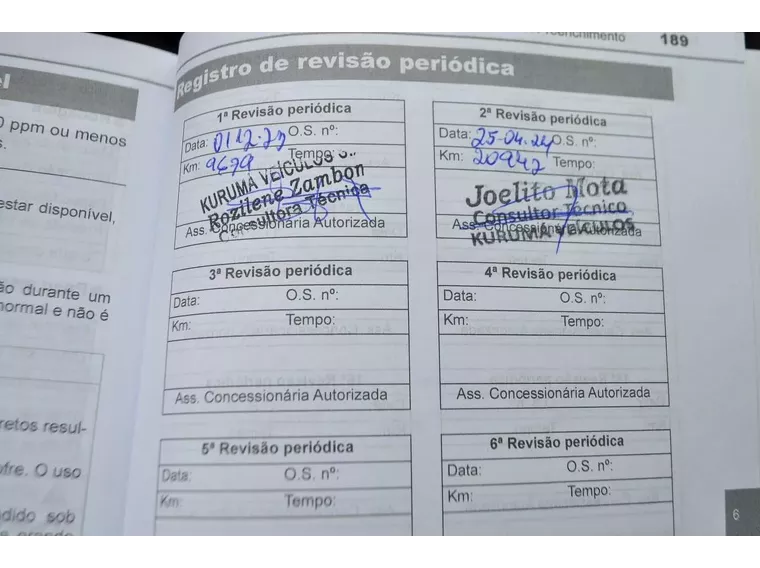 Preenchimento 189
el
0 ppm ou menos
s.
estar disponível,
ão durante um
normal e não é
retos resul-
ofre. O uso
dido sob
Registro de revisão periódica
1ª Revisão periódica
Data: O.S. nº:
Km: 9679 Tempo:
KURUMA VEICULOS S.
Rozilene Zambon
Consultora Técnica
Ass. Concessionária Autorizada
2ª Revisão periódica
Data: 25-04-24 O.S. nº:
Km: 20942 Tempo:
Joelito Mota
Consultor Técnico
KURUMA VEICULOS
Ass. Concessionária Autorizada
3ª Revisão periódica
Data: O.S. nº:
Km: Tempo:
Ass. Concessionária Autorizada
4ª Revisão periódica
Data: O.S. nº:
Km: Tempo:
Ass. Concessionária Autorizada
5ª Revisão periódica
Data: O.S. nº:
Km: Tempo:
6ª Revisão periódica
Data: O.S. nº:
Km: Tempo:
6